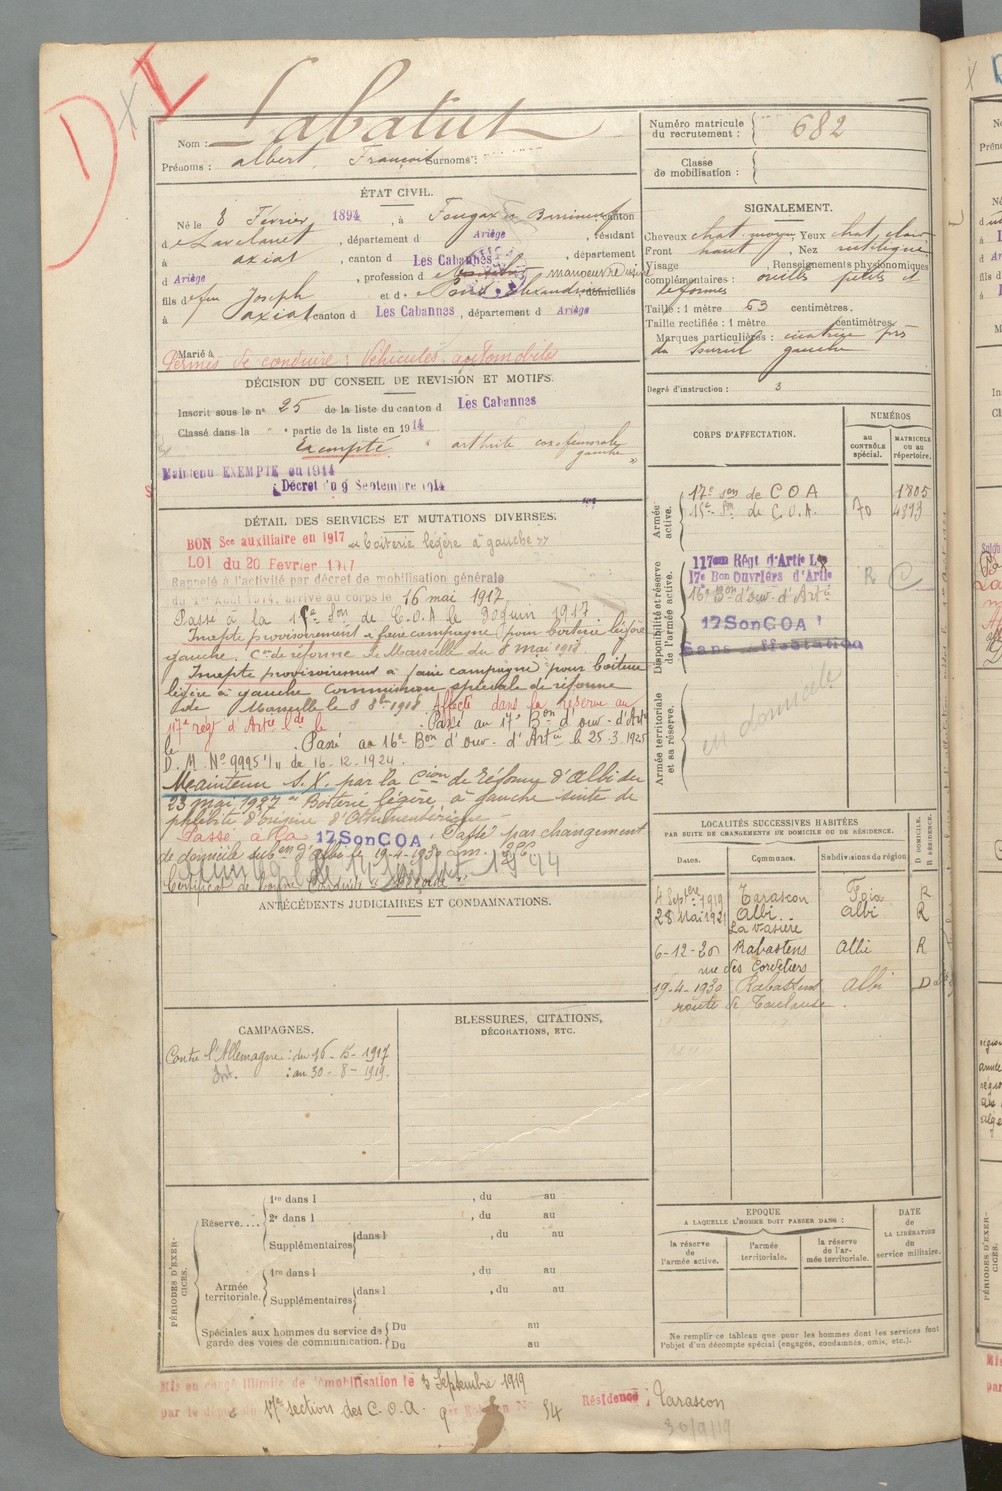 DI
Nom : Labatut
Prénoms : albert, François Surnoms :
Numéro matricule du recrutement : 682
Classe de mobilisation :
ÉTAT CIVIL.
Né le 8 Février 1894, à Fougax et Barrineuf canton
d e Lavelanet, département d Ariège, résidant
à axiat, canton d Les Cabannes, département
d Ariège, profession d manoeuvre
fils de feu Joseph et de domiciliés
à axiat canton d Les Cabannes, département d Ariège
Marié à
Permis de conduire : Véhicules automobiles
SIGNALEMENT.
Cheveux chat. moyen, Yeux chat. clair
Front haut, Nez rectiligne
Visage , Renseignements physionomiques
complémentaires : oreilles petites et
déformés
Taille : 1 mètre 63 centimètres.
Taille rectifiée : 1 mètre centimètres.
Marques particulières : cicatrice près
du sourcil gauche
Degré d'instruction : 3
DÉCISION DU CONSEIL DE REVISION ET MOTIFS.
Inscrit sous le n° 25 de la liste du canton d Les Cabannes
Classé dans la " " partie de la liste en 1914
Exempté " arthrite coxofémorale
gauche "
Maintenu EXEMPTÉ en 1914
Décret du 9 Septembre 1914
CORPS D'AFFECTATION.
NUMÉROS
au CONTRÔLE spécial.
MATRICULE ou au répertoire.
Armée active.
17e Son de C O A 1805
15e Son de C.O.A. 70 4893
Disponibilité et réserve de l'armée active.
117eme Régt d'Artie Lde
17e Bon Ouvriers d'Artie R
16e Bon d'ouv. d'Artie
17SonCOA
Sans Affectation
Armée territoriale et sa réserve.
en domicile
DÉTAIL DES SERVICES ET MUTATIONS DIVERSES.
BON Sce auxiliaire en 1917 " Boiterie légère à gauche "
LOI du 20 Février 1917
Rappelé à l'activité par décret de mobilisation générale
du 1er Août 1914, arrivé au corps le 16 mai 1917
Passé à la 15e Son de C.O.A le 30 juin 1917
Inapte provisoirement à faire campagne pour boiterie légère
gauche. Con de réforme de Marseille du 8 mai 1918
Inapte provisoirement à faire campagne pour boiterie
légère à gauche Commission spéciale de réforme
de Marseille le 8 8bre 1918 Affecté dans la réserve au
117e régt d'Artie lde le . Passé au 17e Bon d'ouv. d'Artie
le . Passé au 16e Bon d'ouv. d'Artie le 25-3-1925
D.M. N° 9995 1/11 de 16-12-1924.
Maintenu S.X. par la Cion de Réforme d'Albi du
23 mai 1927 " Boiterie légère, à gauche suite de
phlébite
Passé à la 17SonCOA. Passé par changement
de domicile subon d'Albi le 19-4-1930
Certificat de bonne Conduite " Accordé "
ANTÉCÉDENTS JUDICIAIRES ET CONDAMNATIONS.
LOCALITÉS SUCCESSIVES HABITÉES
PAR SUITE DE CHANGEMENTS DE DOMICILE OU DE RÉSIDENCE.
Dates. Communes. Subdivisions de région D DOMICILE. R RÉSIDENCE.
4 Septbre 1919 Tarascon Foix R
28 Mai 1921 Albi Albi R
La Vasière
6-12-20 Rabastens Albi R
rue des Cordeliers
19-4-1930 Rabastens Albi D
route de Toulouse.
CAMPAGNES.
Contre l'Allemagne : du 16-5-1917
Int. : au 30-8-1919.
BLESSURES, CITATIONS,
DÉCORATIONS, ETC.
PÉRIODES D'EXERCICES.
Réserve....
1re dans l , du au
2e dans l , du au
Supplémentaires dans l , du au
Armée territoriale.
1re dans l , du au
Supplémentaires dans l , du au
Spéciales aux hommes du service de garde des voies de communication.
Du au
Du au
EPOQUE
A LAQUELLE L'HOMME DOIT PASSER DANS :
la réserve de l'armée active.
l'armée territoriale.
la réserve de l'armée territoriale.
DATE de LA LIBÉRATION du service militaire.
Ne remplir ce tableau que pour les hommes dont les services font
l'objet d'un décompte spécial (engagés, condamnés, omis, etc.).
Mis en congé illimité de démobilisation le 3 Septembre 1919
par le dépôt du 17e section des C.O.A. 9e Echelon N° 54
Résidence : Tarascon
30/9/19